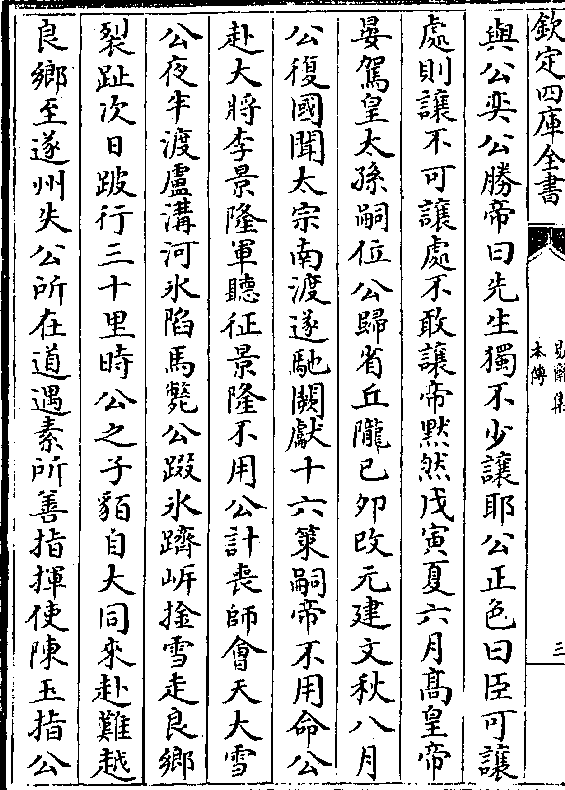 欽定四庫全書
易齋集
本傳
三
與公奕公勝帝曰先生獨不少讓耶公正色曰臣可讓
處則讓不可讓處不敢讓帝黙然戊寅夏六月髙皇帝
晏駕皇太孫嗣位公歸省丘隴已夘改元建文秋八月
公復國聞太宗南渡遂馳闕獻十六䇿嗣帝不用命公
赴大將李景隆軍聽征景隆不用公計喪師會天大雪
公夜半渡盧溝河氷陷馬斃公踆氷躋岍捡雪走良鄉
裂趾次日跛行三十里時公之子貊自大同來赴難越
良鄉至遂州失公所在道遇素所善指揮使陳玉指公